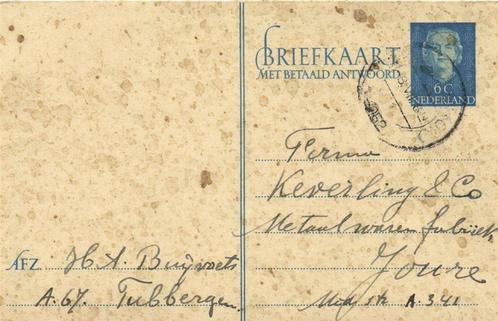 BRIEFKAART
MET BETAALD ANTWOORD
6 C
NEDERLAND
Firma
Keverling & Co
Metaalwaren fabriek
Joure
A. 341
AFZ. H A Buijvoets
A. 67. Tubbergen.